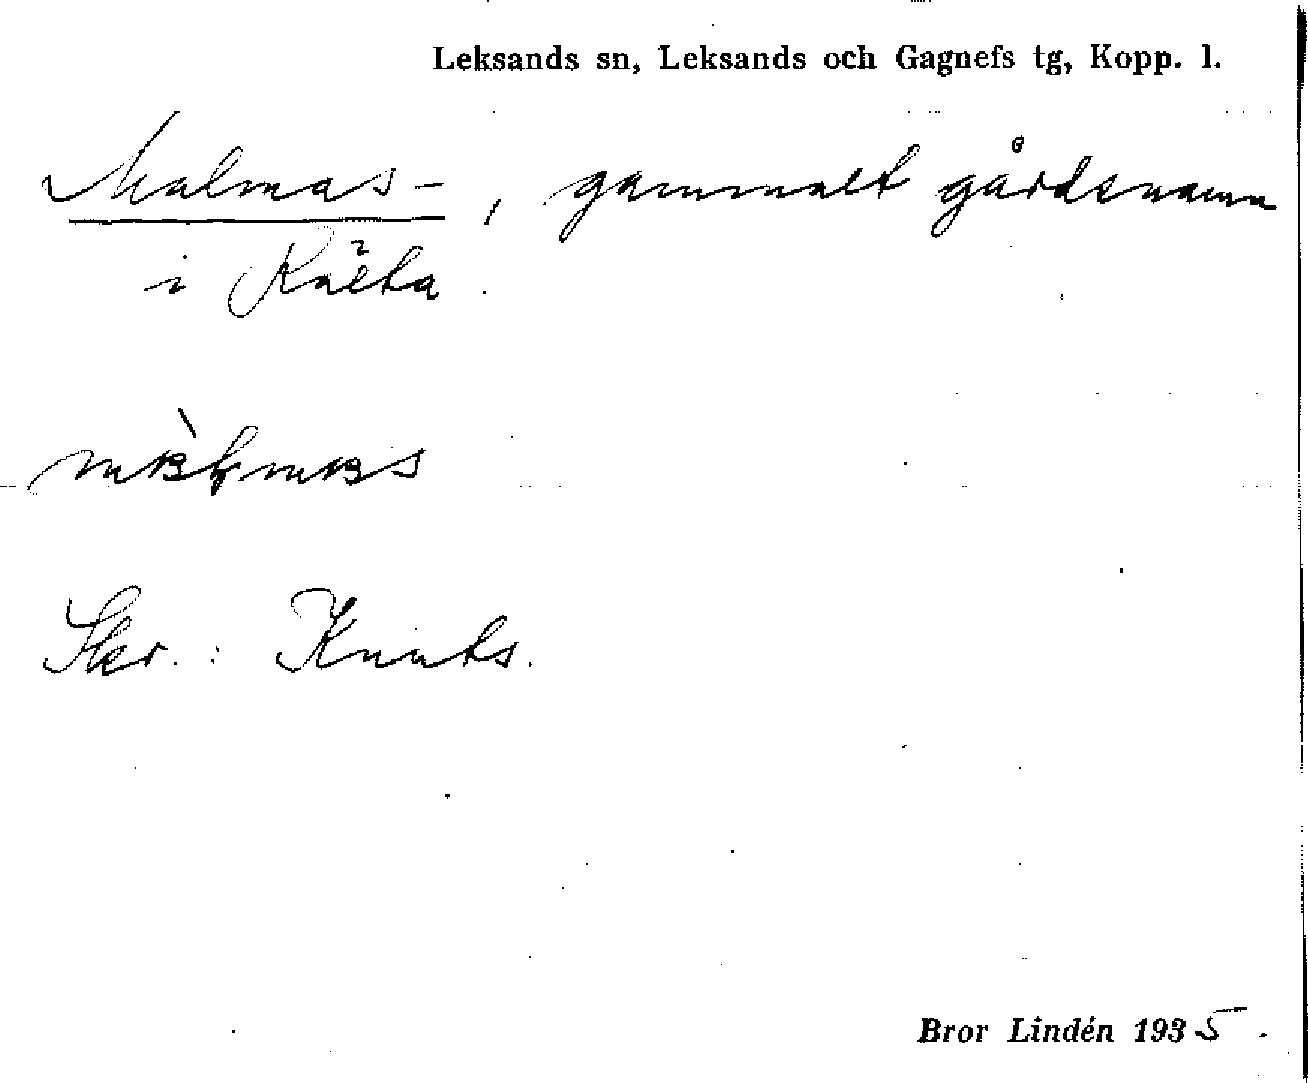 Leksands sn, Leksands och Gagnefs tg, Kopp. l.
Malmas-, gammalt gårdsnamn
i Rälta.
Skr.: Knuts.
Bror Lindén 1935.